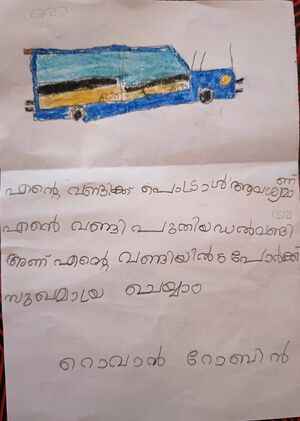 എന്റെ വണ്ടിക്ക് പെട്രാൾ ആവശ്യമാണ്
എൻ വണ്ടി പുതിയഡൽവണ്ടി
അണ് എന്റെ വണ്ടിയിൽ 5 പോർക്ക്
സുഖമാട്രയ ചെയ്യാം
റൊവാൻ റോബിൻ